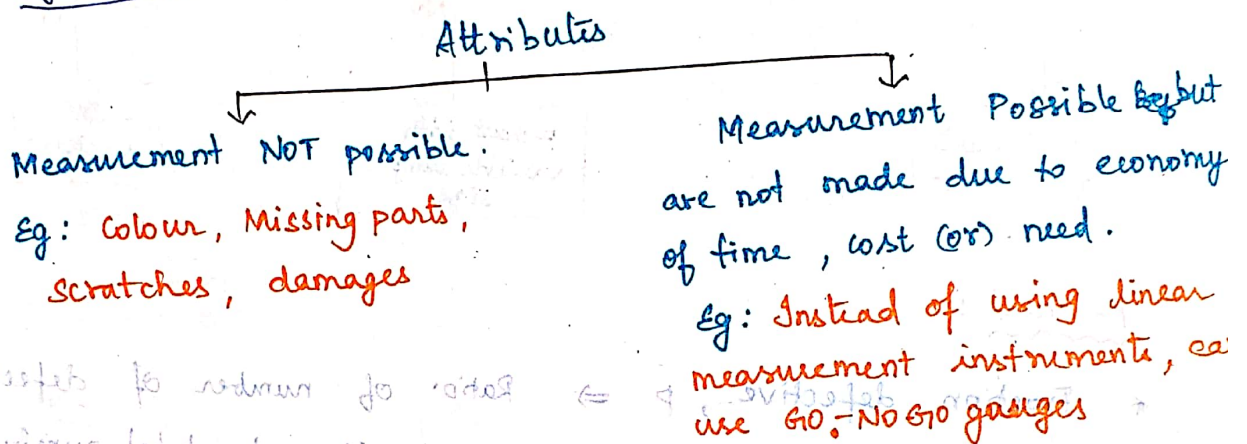 Attributes
Measurement NOT possible.
Eg: Colour, Missing parts,
scratches, damages
Measurement Possible but
are not made due to economy
of time, cost (or) need.
Eg: Instead of using linear
measurement instruments, ca
use GO-NO GO gauges